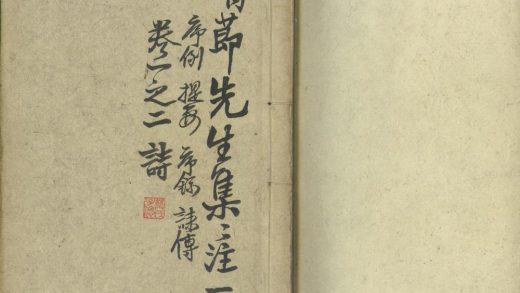 莭先生集〻注一
序例 提要 序録 誄傳
卷一之二 詩